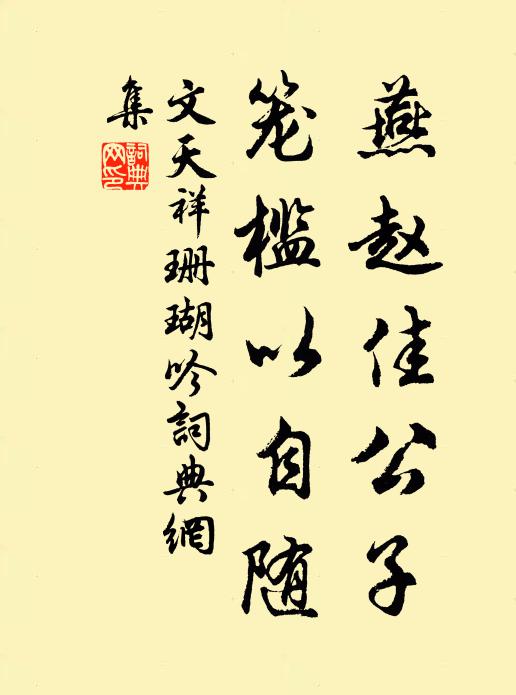 燕赵佳公子
笼槛以自随
文天祥珊瑚吟詞典網
集
詞典
网印